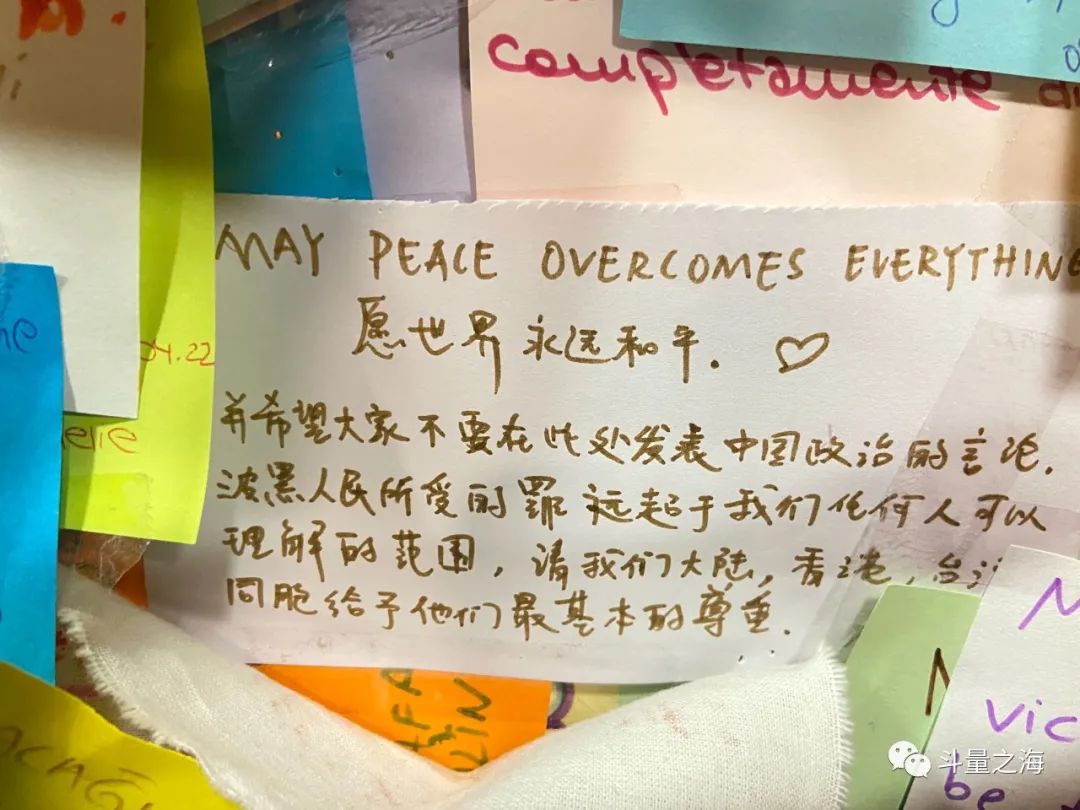 completamente
MAY PEACE OVERCOMES EVERYTHING
愿世界永远和平.
04.22
并希望大家不要在此处发表中国政治的言论.
elie
波黑人民所受的罪远超于我们任何人可以
理解的范围，请我们大陆，香港，台
同胞给予他们最基本的尊重.
LIN
vic
be
斗量之海